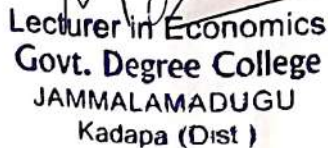 Lecturer in Economics
Govt. Degree College
JAMMALAMADUGU
Kadapa (Dist )